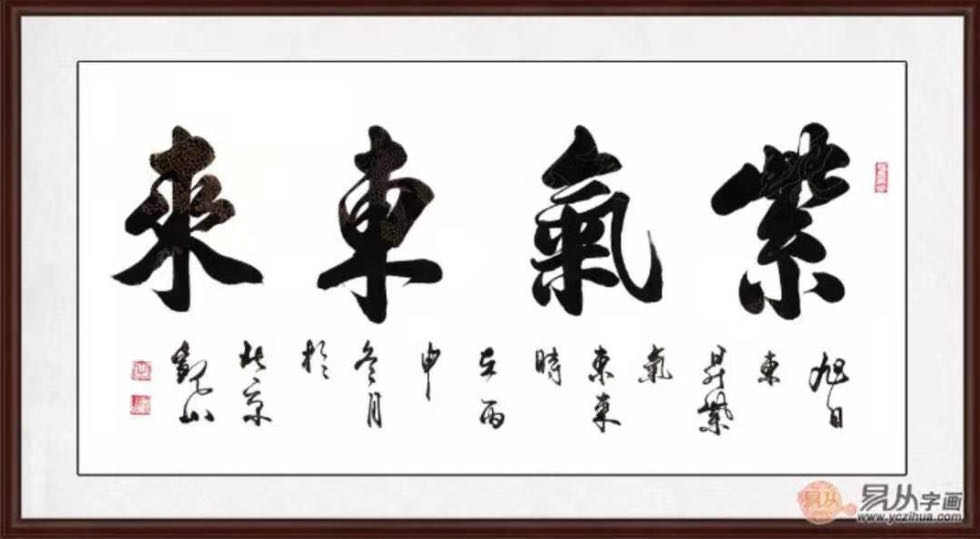 紫氣東來
旭日
東
昇紫
氣
東來
時
丙
申
冬月
於
北京
觀山
易从
易从字画
www.yczihua.com